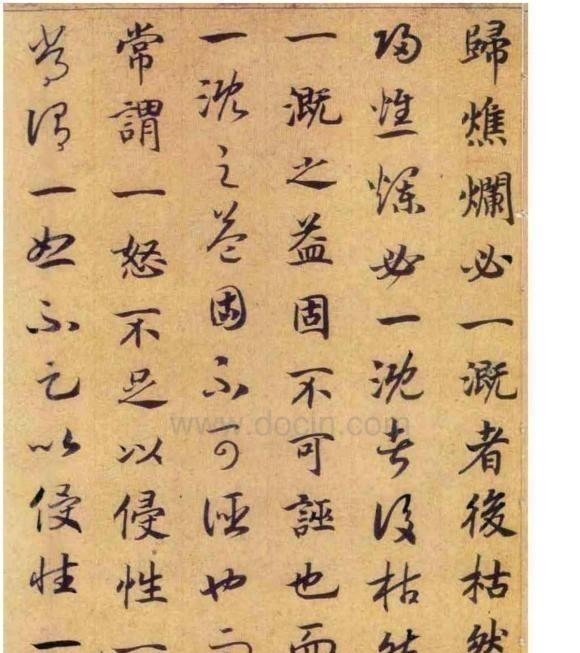 歸燋爛必一溉者後枯然
歸燋爛必一溉者後枯然
一溉之益固不可誣也而
一溉之益固不可誣也而
常謂一怒不足以侵性一
常謂一怒不足以侵性一
www.docin.com